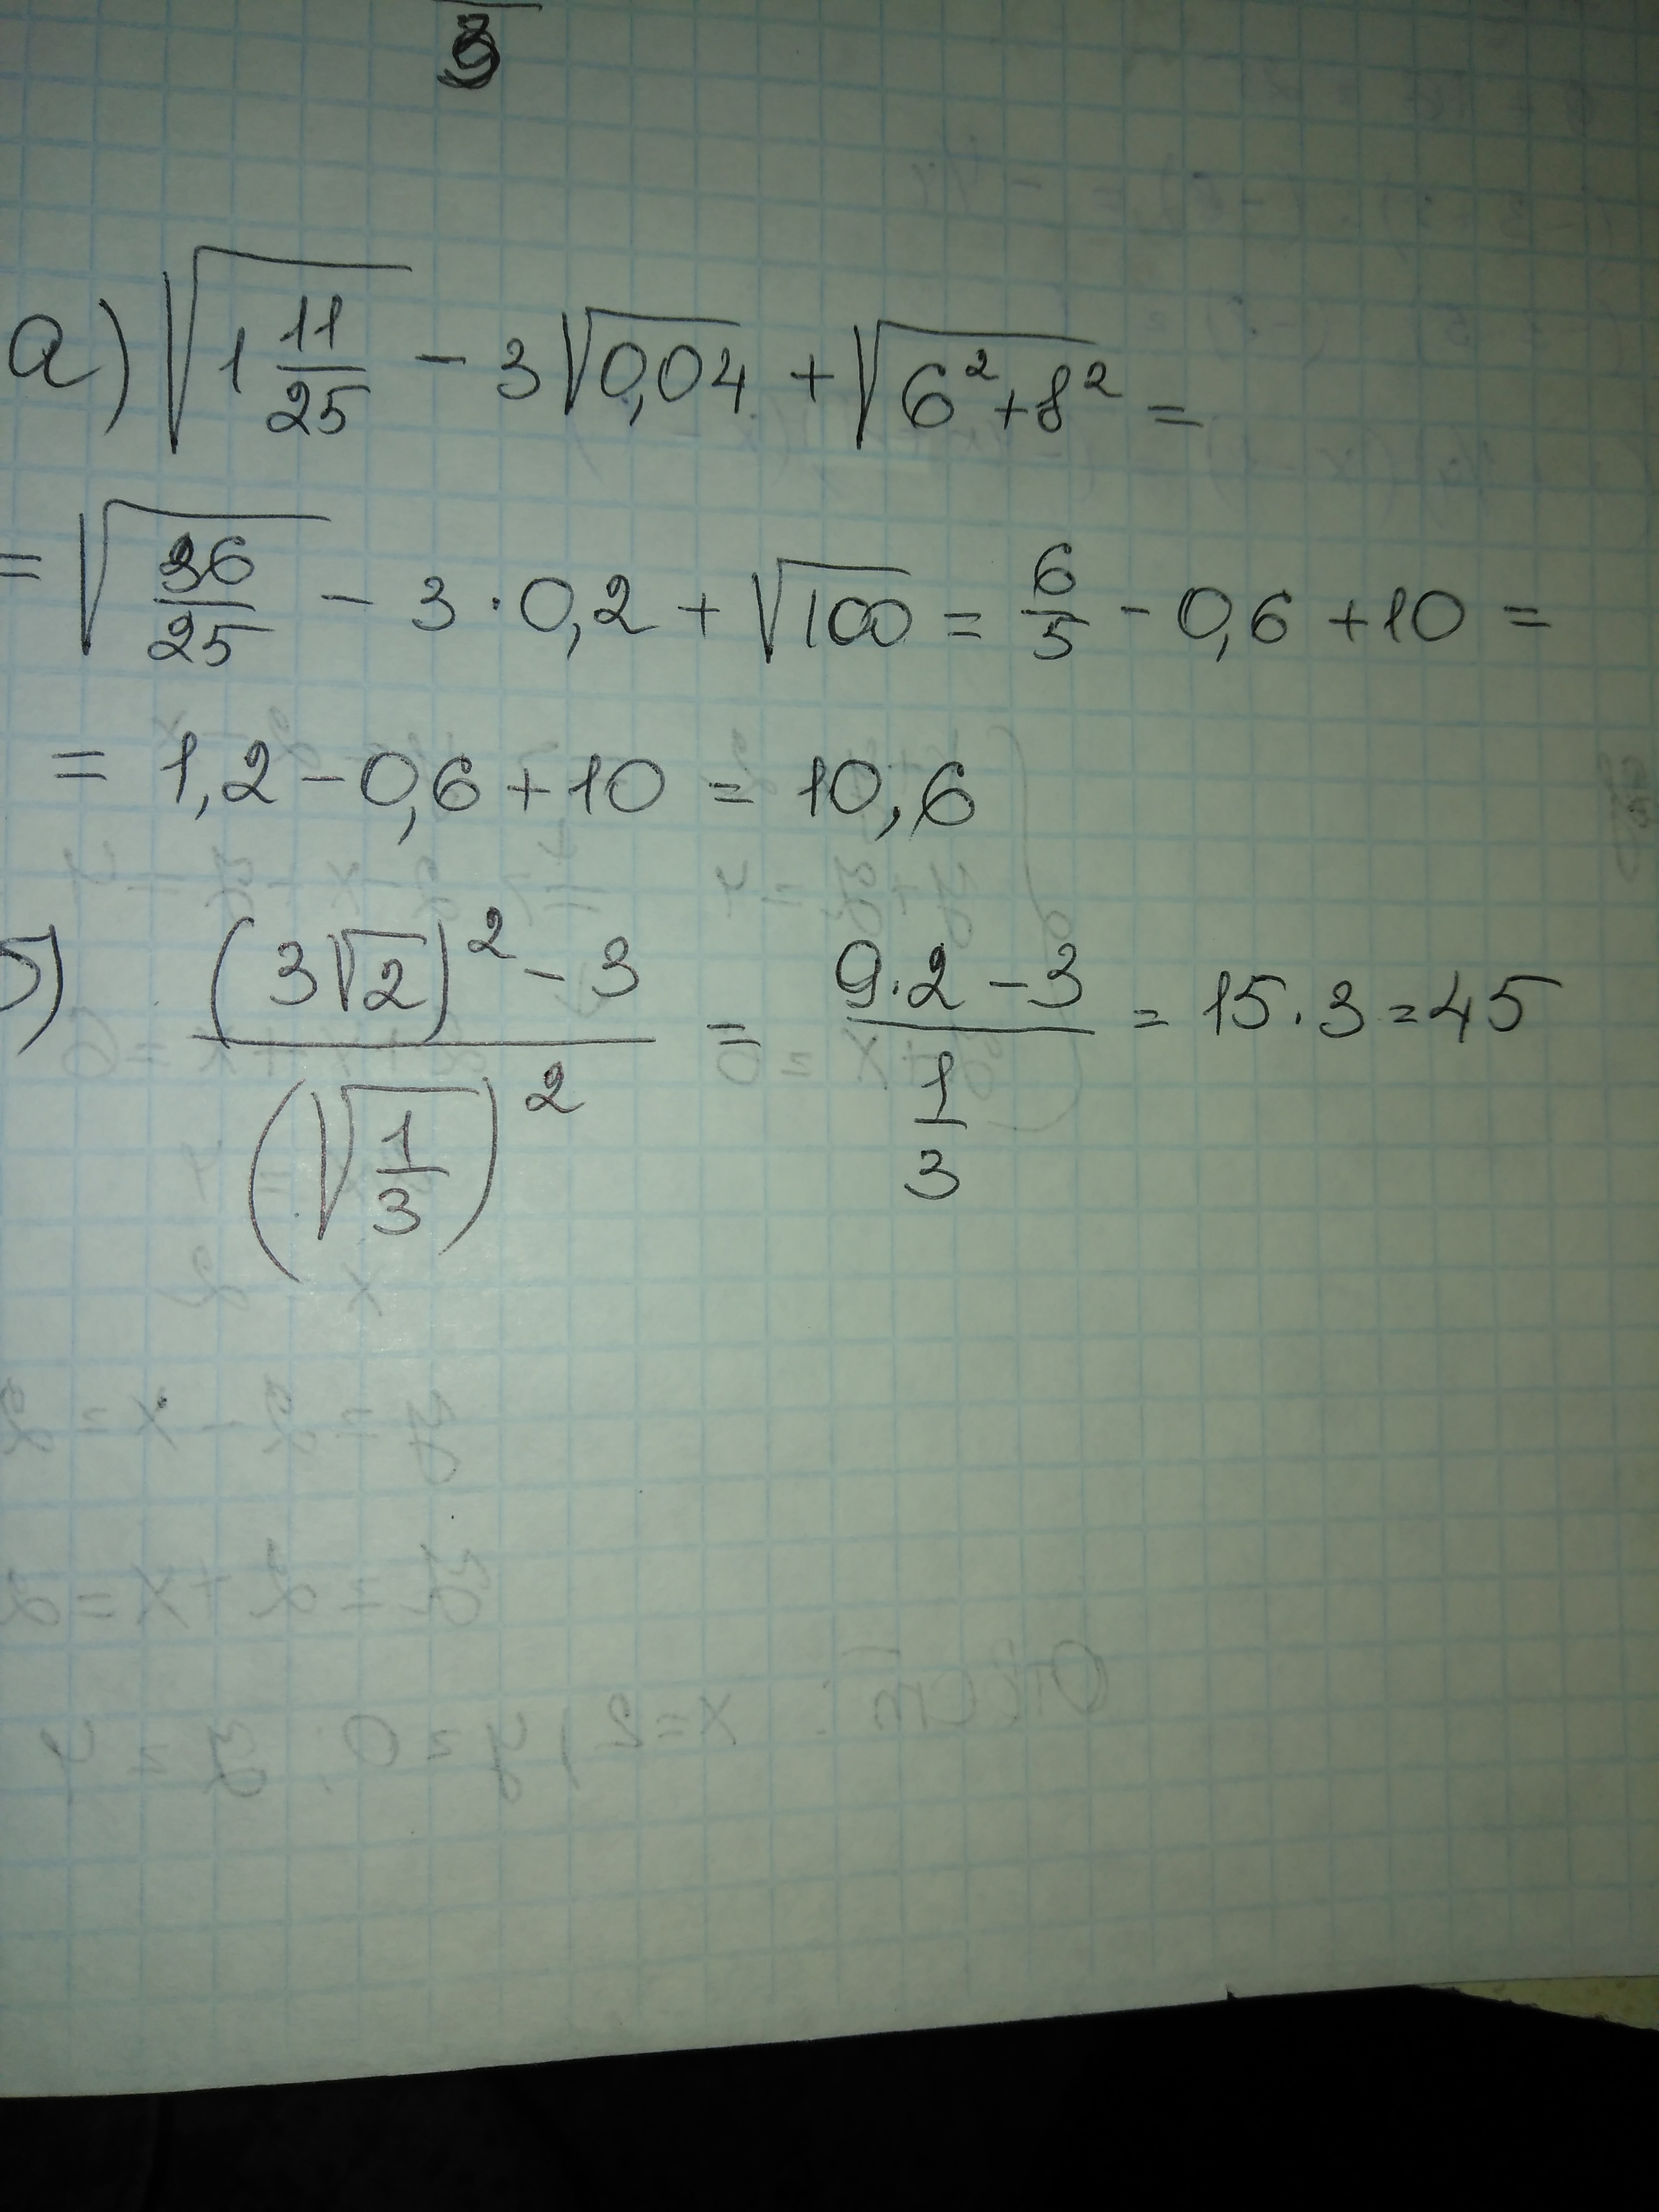 3
а) √(1 11/25) - 3√0,04 + √(6² + 8²) =
= √(36/25) - 3 · 0,2 + √100 = 6/5 - 0,6 + 10 =
= 1,2 - 0,6 + 10 = 10,6
б) ((3√2)² - 3)/(√(1/3))² = (9·2 - 3)/(1/3) = 15 · 3 = 45